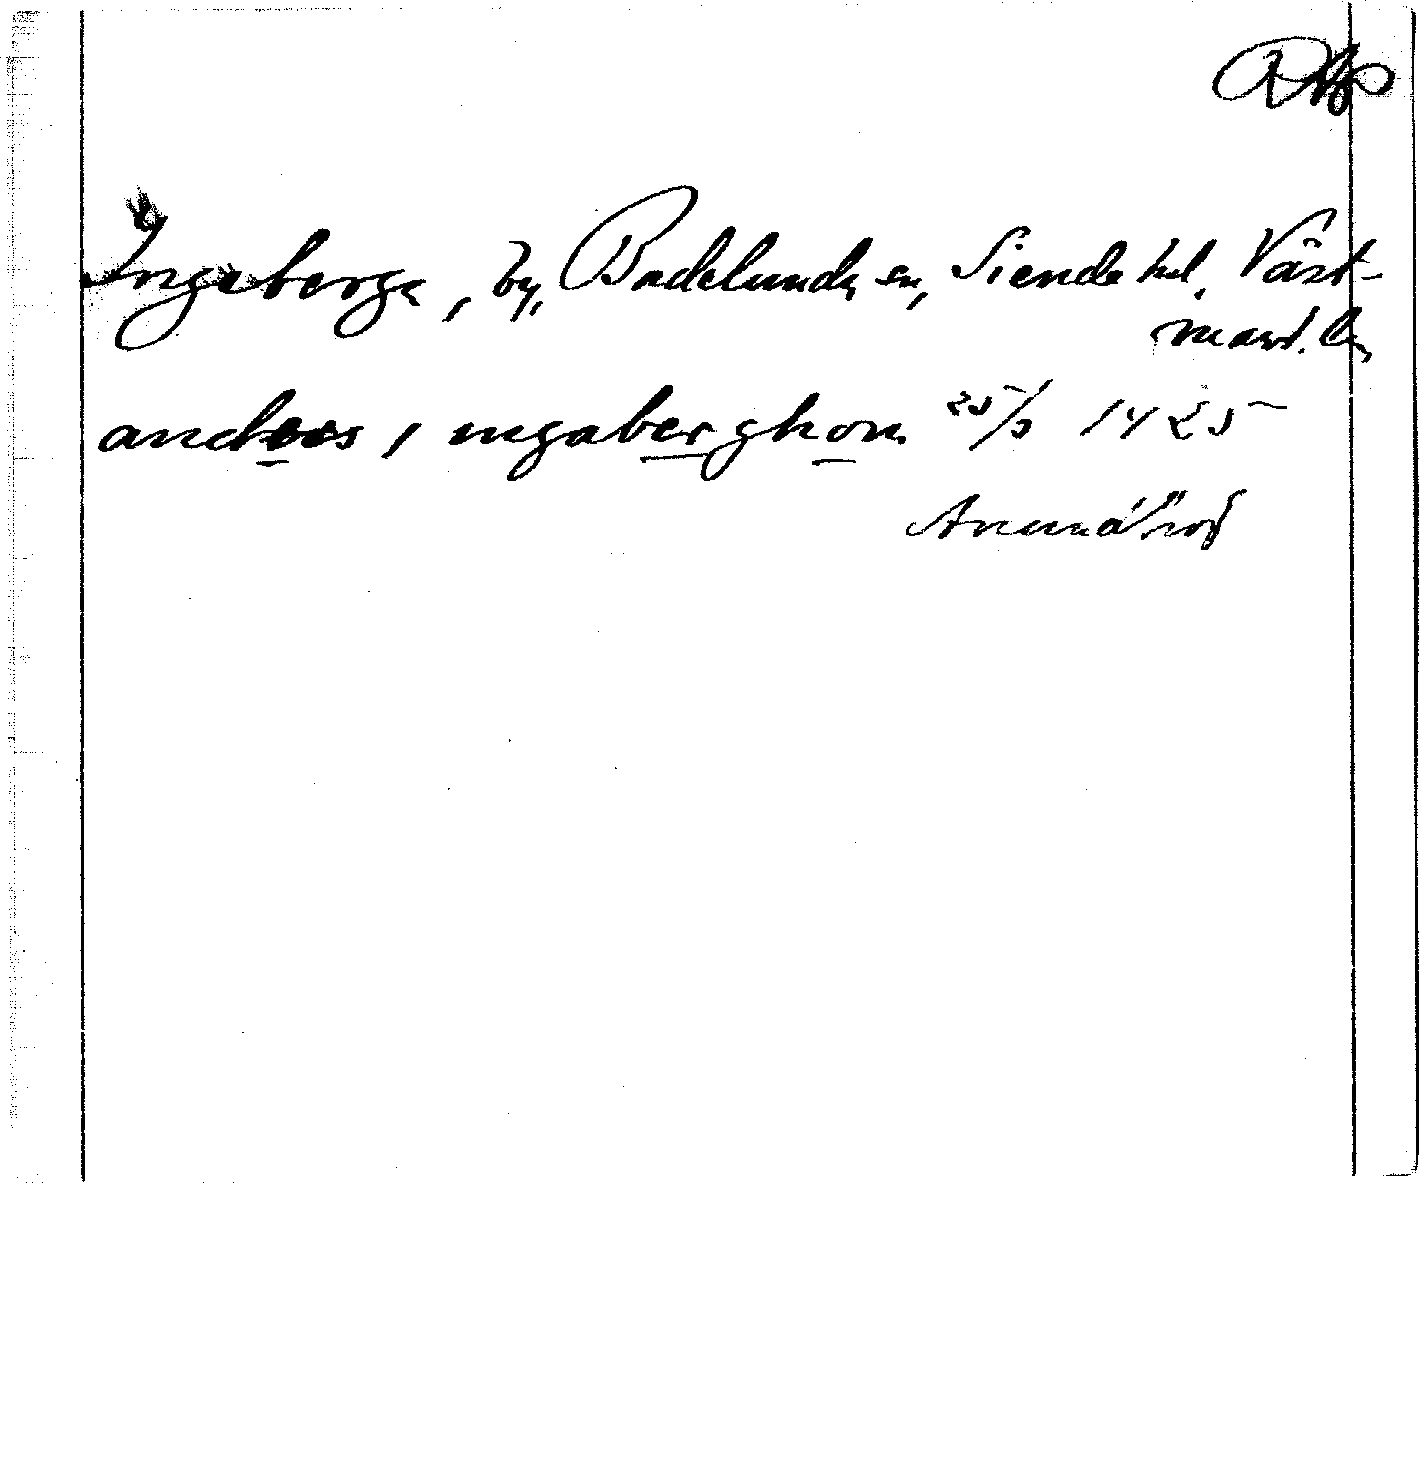 Ingeberga, by, Badelunda sn, Siende hd. Väst-
manl. l.
andres i ingaberghom 25/3 1425